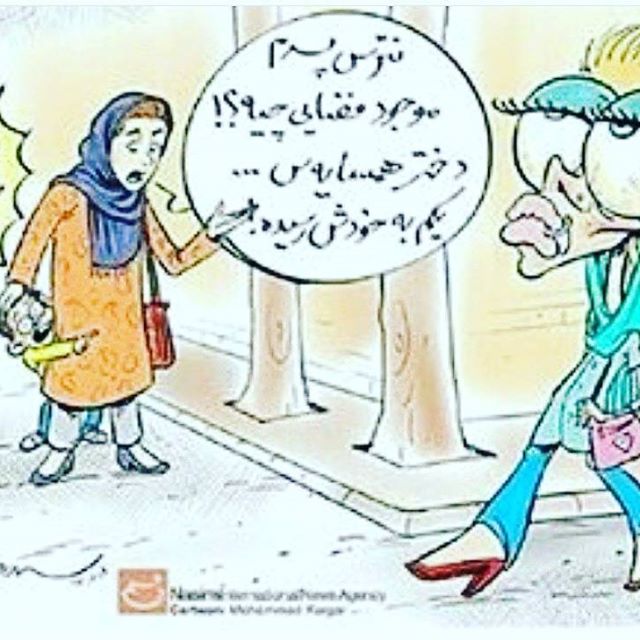 نترس پسرم
موجود فضایی چیه؟!
دختر همسایه س ...
یکم به خودش رسیده!
Nasim International News Agency
Cartoon: Mohammad Kargar